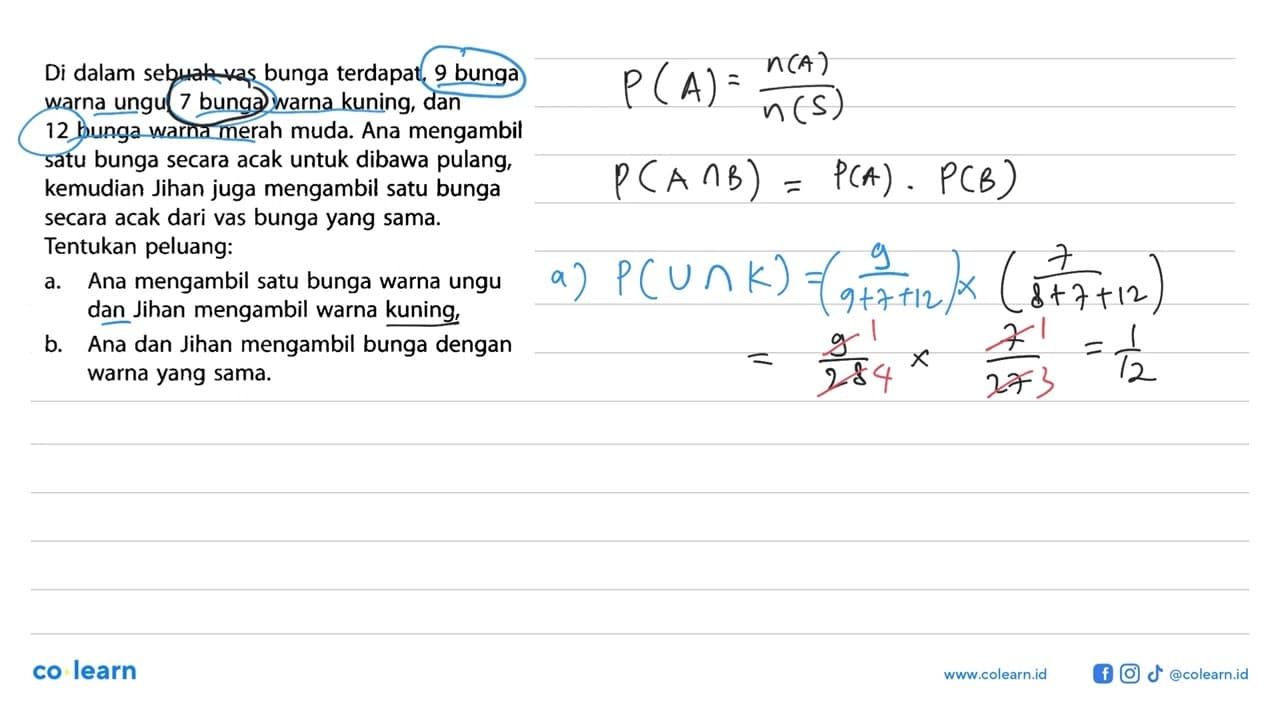 Di dalam sebuah vas bunga terdapat, 9 bunga
warna ungu, 7 bunga warna kuning, dan
12 bunga warna merah muda. Ana mengambil
satu bunga secara acak untuk dibawa pulang,
kemudian Jihan juga mengambil satu bunga
secara acak dari vas bunga yang sama.
Tentukan peluang:
a. Ana mengambil satu bunga warna ungu
dan Jihan mengambil warna kuning,
b. Ana dan Jihan mengambil bunga dengan
warna yang sama.
P(A) = n(A)/n(S)
P(A ∩ B) = P(A) . P(B)
a) P(U ∩ K) = (9/9+7+12) × (7/8+7+12)
= 9 1/28 4 × 7 1/27 3 = 1/12
co learn
www.colearn.id
@colearn.id